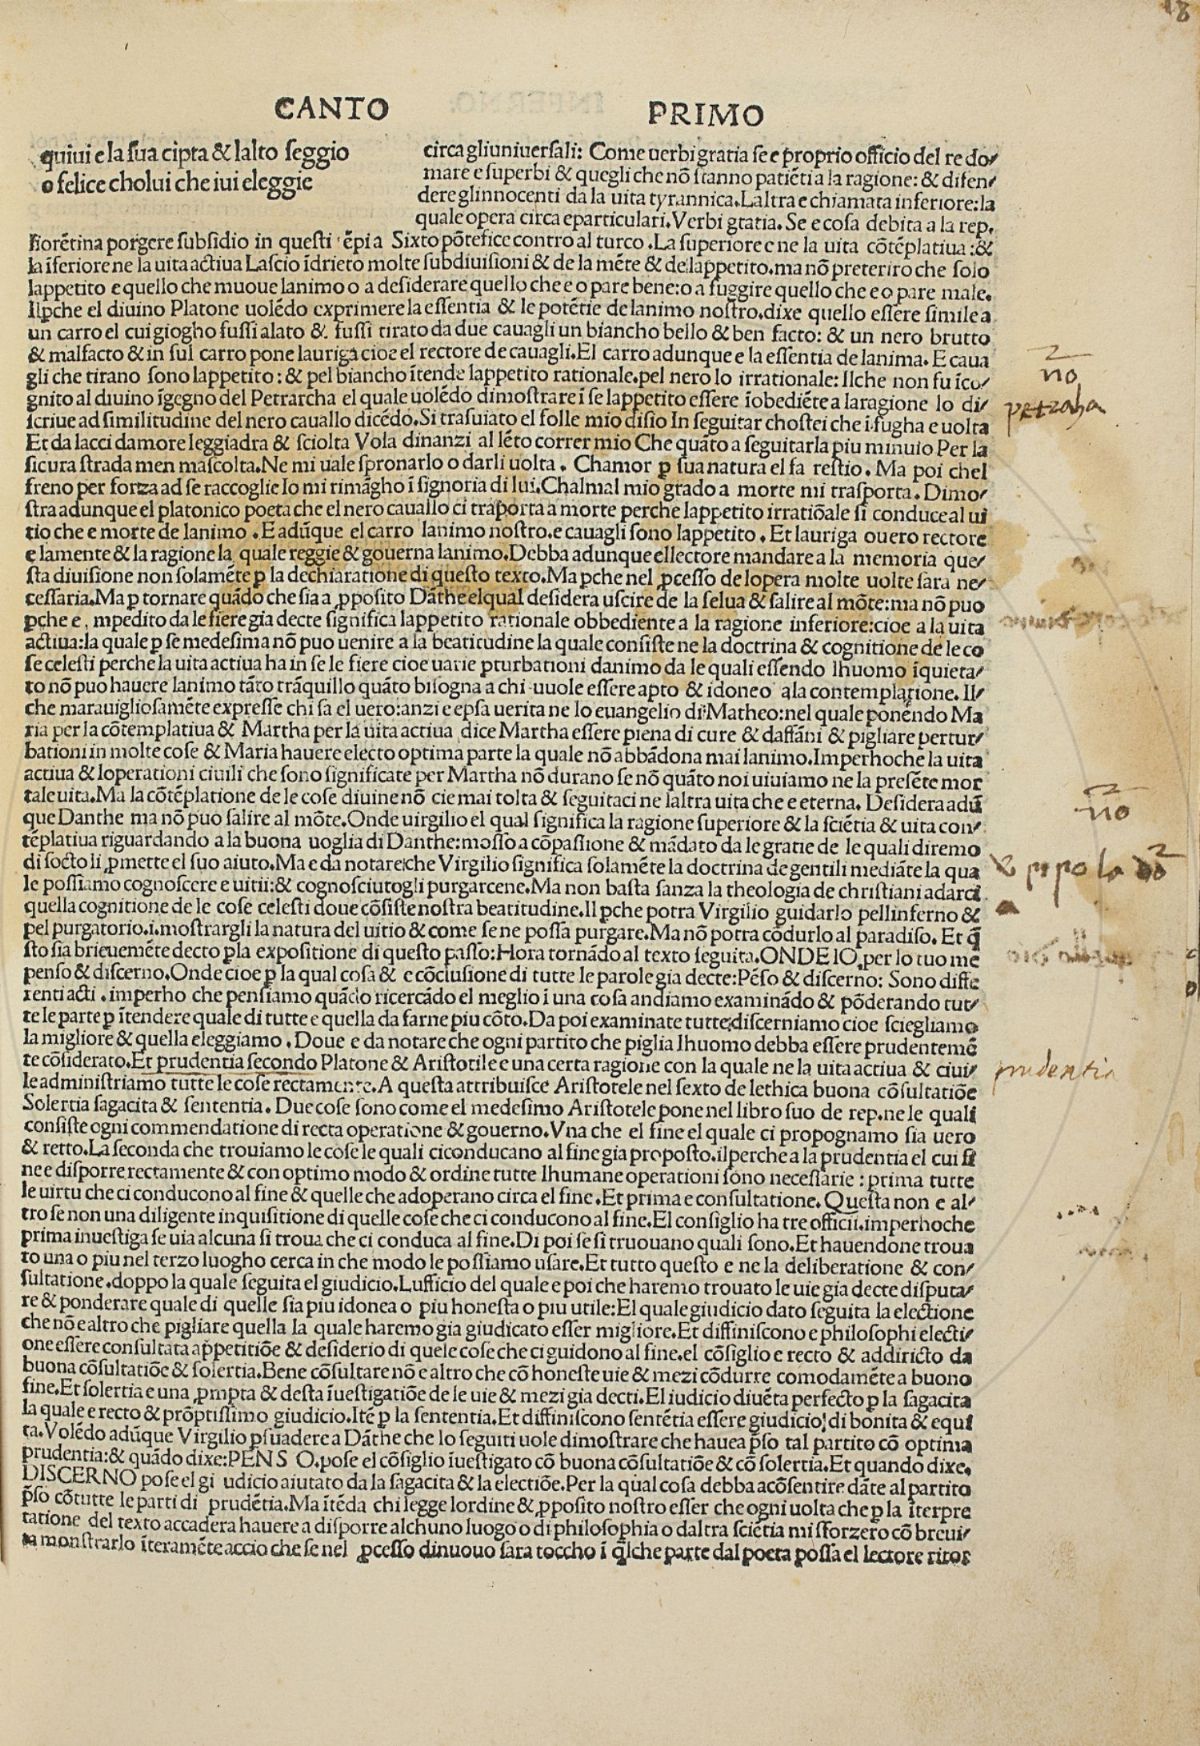 18
CANTO PRIMO
quiui e la sua cipta & lalto seggio
o felice cholui che iui eleggie
circa gli uniuersali: Come uerbi gratia se e proprio officio del re do/
mare e superbi & quegli che nõ stanno patiẽti a la ragione: & difen/
dere glinnocenti da la uita tyrannica. Laltra e chiamata inferiore: la
quale opera circa e particulari. Verbi gratia. Se e cosa debita a la rep.
fiorẽtina porgere subsidio in questi tẽpi a Sixto põtefice contro al turco. La superiore e ne la uita cõtẽplatiua: &
la ĩferiore ne la uita actiua Lascio ĩdrieto molte subdiuisioni & de la mẽte & de lappetito. ma nõ preteriro che solo
lappetito e quello che muoue lanimo o a desiderare quello che e o pare bene: o a fuggire quello che e o pare male.
Ilpche el diuino Platone uolẽdo exprimere la essentia & le potẽtie de lanimo nostro. dixe quello essere simile a
un carro el cui giogho fussi alato & fussi tirato da due cauagli un biancho bello & ben facto: & un nero brutto
& malfacto & in sul carro pone lauriga cioe el rectore de cauagli. El carro adunque e la essentia de lanima. E caua
gli che tirano sono lappetito: & pel biancho ĩtende lappetito rationale. pel nero lo irrationale: Ilche non fu ĩco/
gnito al diuino ĩgegno del Petrarcha el quale uolẽdo dimostrare i se lappetito essere ĩobediẽte a la ragione lo di/
scriue ad similitudine del nero cauallo dicẽdo. Si trasuiato el folle mio disio In seguitar chostei che ĩ fugha e uolta
Et da lacci damore leggiadra & sciolta Vola dinanzi al lẽto correr mio Che quãto a seguitarla piu minuio Per la
sicura strada men mascolta. Ne mi uale spronarlo o darli uolta. Chamor ꝑ sua natura el fa restio. Ma poi chel
freno per forza ad se raccoglie Io mi rimãgho ĩ signoria di lui. Chalmal mio grado a morte mi trasporta. Dimo/
stra adunque el platonico poeta che el nero cauallo ci traporta a morte perche lappetito irratiõale si conduce al ui
tio che e morte de lanimo. E adũque el carro lanimo nostro. e cauagli sono lappetito. Et lauriga ouero rectore
e lamente & la ragione la quale reggie & gouerna lanimo. Debba adunque ellectore mandare a la memoria que/
sta diuisione non solamẽte ꝑ la dechiaratione di questo texto. Ma pche nel ꝓcesso de lopera molte uolte sara ne/
cessaria. Ma ꝑ tornare quãdo che sia a ꝓposito Dãthe elqual desidera uscire de la selua & salire al mõte: ma nõ puo
ꝑche e, mpedito da le fiere gia decte significa lappetito rationale obbediente a la ragione inferiore: cioe a la uita
actiua: la quale ꝑ se medesima nõ puo uenire a la beatitudine la quale consiste ne la doctrina & cognitione de le co
se celesti perche la uita actiua ha in se le fiere cioe uarie ꝑturbationi danimo da le quali essendo lhuomo ĩquieta/
to nõ puo hauere lanimo tãto trãquillo quãto bisogna a chi uuole essere apto & idoneo ala contemplatione. Il/
che marauigliosamẽte expresse chi sa el uero: anzi e epsa uerita ne lo euangelio di Matheo: nel quale ponẽndo Ma
ria per la cõtemplatiua & Martha per la uita actiua dice Martha essere piena di cure & daffãni & pigliare pertur/
bationi in molte cose & Maria hauere electo optima parte la quale nõ abbãdona mai lanimo. Imperhoche la uita
actiua & loperationi ciuili che sono significate per Martha nõ durano se nõ quãto noi uiuiamo ne la presẽte mor
tale uita. Ma la cõtẽplatione de le cose diuine nõ cie mai tolta & seguitaci ne laltra uita che e eterna. Desidera adũ
que Danthe ma nõ puo salire al mõte. Onde uirgilio el qual significa la ragione superiore & la sciẽtia & uita con/
tẽplatiua riguardando a la buona uoglia di Danthe: mosso a cõpassione & mãdato da le gratie de le quali diremo
di socto li ꝓmette el suo aiuto. Ma e da notare che Virgilio significa solamẽte la doctrina de gentili mediãte la qua
le possiamo cognoscere e uitii: & cognosciutogli purgarcene. Ma non basta sanza la theologia de christiani a darci
quella cognitione de le cose celesti doue cõsiste nostra beatitudine. Il pche potra Virgilio guidarlo pellinferno &
pel purgatorio. i. mostrargli la natura del uitio & come se ne possa purgare. Ma nõ potra cõdurlo al paradiso. Et q̃
sto sia brieuemẽte decto ꝑ la expositione di questo passo: Hora tornãdo al texto seguita. ONDE IO. per lo tuo me
penso & discerno. Onde cioe ꝑ la qual cosa & e cõclusione di tutte le parole gia decte: Pẽso & discerno: Sono diffe
renti acti. imperho che pensiamo quãdo ricercãdo el meglio i una cosa andiamo examinãdo & põderando tut/
te le parte ꝑ ĩtendere quale di tutte e quella da farne piu cõto. Da poi examinate tutte discerniamo cioe sciegliamo
la migliore & quella eleggiamo. Doue e da notare che ogni partito che piglia lhuomo debba essere prudentemẽ
te cõsiderato. Et prudentia secondo Platone & Aristotile e una certa ragione con la quale ne la uita actiua & ciui/
le administriamo tutte le cose rectamente. A questa attribuisce Aristotele nel sexto de lethica buona cõsultatiõe
Solertia sagacita & sententia. Due cose sono come el medesimo Aristotele pone nel libro suo de rep. ne le quali
consiste ogni commendatione di recta operatione & gouerno. Vna che el fine el quale ci propognamo sia uero
& retto. La seconda che trouiamo le cose le quali ci conducano al fine gia proposto. ilperche a la prudentia el cui fi
ne e disporre rectamente & con optimo modo & ordine tutte lhumane operationi sono necessarie: prima tutte
le uirtu che ci conducono al fine & quelle che adoperano circa el fine. Et prima e consultatione. Questa non e al/
tro se non una diligente inquisitione di quelle cose che ci conducono al fine. El consiglio ha tre officii. imperhoche
prima inuestiga se uia alcuna si troua che ci conduca al fine. Di poi se si truouano quali sono. Et hauendone troua
to una o piu nel terzo luogho cerca in che modo le possiamo usare. Et tutto questo e ne la deliberatione & con/
sultatione. doppo la quale seguita el giudicio. Lufficio del quale e poi che haremo trouato le uie gia decte disputa/
re & ponderare quale di quelle sia piu idonea o piu honesta o piu utile: El quale giudicio dato seguita la electione
che nõ e altro che pigliare quella la quale haremo gia giudicato esser migliore. Et diffiniscono e philosophi electi/
one essere consultata appetitiõe & desiderio di quele cose che ci guidono al fine. el cõsiglio e recto & addiricto da
buona cõsultatiõe & solertia. Bene cõsultare nõ e altro che cõ honeste uie & mezi cõdurre comodamẽte a buono
fine. Et solertia e una ꝓmpta & desta ĩuestigatiõe de le uie & mezi gia decti. El iudicio diuẽta perfecto ꝑ la sagacita
la quale e recto & prõptissimo giudicio. Itẽ ꝑ la sententia. Et diffiniscono sentẽtia essere giudicio di bonita & equi
ta. Volẽdo adũque Virgilio ꝑsuadere a Dãthe che lo seguiti uole dimostrare che hauea p̃so tal partito cõ optima
prudentia: & quãdo dixe: PENS O. pose el cõsiglio ĩuestigato cõ buona cõsultatiõe & cõ solertia. Et quando dixe.
DISCERNO pose el gi udicio aiutato da la sagacita & la electiõe. Per la qual cosa debba acõsentire dãte al partito
p̃so cõ tutte le parti di prudẽtia. Ma ĩtẽda chi legge lordine & ꝓposito nostro esser che ogni uolta che ꝑ la ĩterpre
tatione del texto accadera hauere a disporre alchuno luogo o di philosophia o daltra sciẽtia mi sforzero cõ breui/
ta monstrarlo ĩteramẽte accio che se nel ꝓcesso dinuouo sara toccho ĩ q̃lche parte dal poeta possa el lectore ritor
no
petrarha
no
prudentia